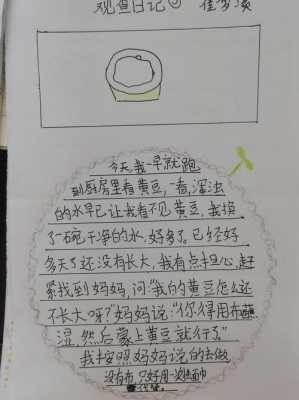 观查日记
今天我一早就跑
到厨房里看黄豆,一看,浑浊
的水早已让我看不见黄豆,我换
了一碗干净的水,好多了。已经好
多天了还没有长大,我有点担心,赶
紧找到妈妈,问“我的黄豆怎么还
不长大呀?”妈妈说:“你得用布蘸
湿,然后蒙上黄豆就行了”
我按照妈妈说的去做
没有布,只好用一次性面巾
代替。